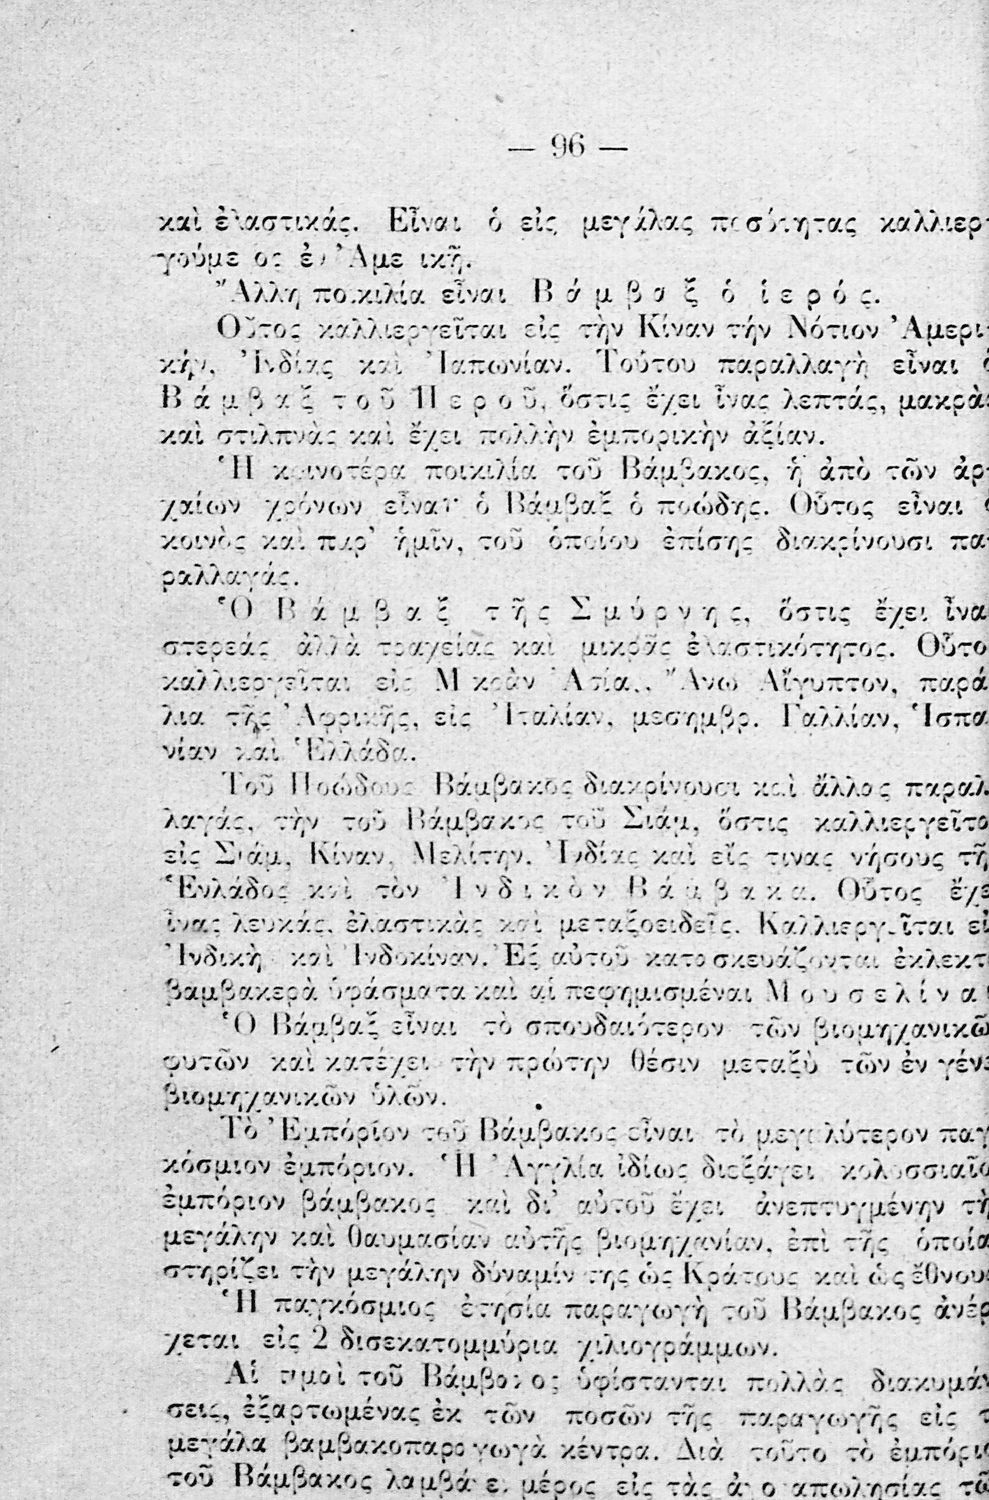 — 96 —
καὶ ἐλαστικάς. Εἶναι ὁ εἰς μεγάλας ποσότητας καλλιερ-
γούμε ος ἐν Ἀμε ικῇ.
Ἄλλη ποικιλία εἶναι Βάμβαξ ὁ ἱερός.
Οὗτος καλλιεργεῖται εἰς τὴν Κίναν τήν Νότιον Ἀμερι-
κήν, Ἰνδίας καὶ Ἰαπωνίαν. Τούτου παραλλαγὴ εἶναι ὁ
Βάμβαξ τοῦ Περοῦ, ὅστις ἔχει ἶνας λεπτάς, μακρὰς
καὶ στιλπνὰς καὶ ἔχει πολλὴν ἐμπορικὴν ἀξίαν.
Ἡ κοινοτέρα ποικιλία τοῦ Βάμβακος, ἡ ἀπὸ τῶν ἀρ-
χαίων χρόνων εἶναι ὁ Βάμβαξ ὁ ποώδης. Οὗτος εἶναι ὁ
κοινὸς καὶ παρ' ἡμῖν, τοῦ ὁποίου ἐπίσης διακρίνουσι πα-
ραλλαγάς.
Ὁ Βάμβαξ τῆς Σμύρνης, ὅστις ἔχει ἶνα
στερεάς ἀλλὰ τραχείας καὶ μικρᾶς ἐλαστικότητος. Οὗτο
καλλιεργεῖται εἰς Μικρὰν Ἀσίαν, Ἄνω Αἴγυπτον, παρά
λια τῆς Ἀφρικῆς, εἰς Ἰταλίαν, μεσημβρ. Γαλλίαν, Ἱσπα
νίαν καὶ Ἑλλάδα.
Τοῦ Ποώδους Βάμβακος διακρίνουσι καὶ ἄλλας παραλ
λαγάς, τὴν τοῦ Βάμβακος τοῦ Σιάμ, ὅστις καλλιεργεῖτα
εἰς Σιάμ, Κίναν, Μελίτην, Ἰνδίας καὶ εἴς τινας νήσους τῆ
Ἑνλάδος καὶ τὸν Ἰνδικὸν Βάμβακα. Οὗτος ἔχε
ἶνας λευκάς, ἐλαστικὰς καὶ μεταξοειδεῖς. Καλλιεργεῖται εἰ
Ἰνδικὴ καὶ Ἰνδοκίναν. Ἐξ αὐτοῦ κατασκευάζονται ἐκλεκτ
βαμβακερὰ ὑφάσματα καὶ αἱ πεφημισμέναι Μουσελίνα
Ὁ Βάμβαξ εἶναι τὸ σπουδαιότερον τῶν βιομηχανικῶ
φυτῶν καὶ κατέχει τὴν πρώτην θέσιν μεταξὺ τῶν ἐν γένε
βιομηχανικῶν ὑλῶν.
Τὸ Ἐμπόριον τοῦ Βάμβακος εἶναι τὸ μεγαλύτερον παγ
κόσμιον ἐμπόριον. Ἡ Ἀγγλία ἰδίως διεξάγει κολοσσιαῖο
ἐμπόριον βάμβακος καὶ δι' αὐτοῦ ἔχει ἀνεπτυγμένην τὴ
μεγάλην καὶ θαυμασίαν αὐτῆς βιομηχανίαν, ἐπὶ τῆς ὁποία
στηρίζει τὴν μεγάλην δύναμίν της ὡς Κράτους καὶ ὡς ἔθνους
Ἡ παγκόσμιος ἐτησία παραγωγὴ τοῦ Βάμβακος ἀνέρ
χεται εἰς 2 δισεκατομμύρια χιλιογράμμων.
Αἱ τιμαὶ τοῦ Βάμβακος ὑφίστανται πολλὰς διακυμάν
σεις, ἐξαρτωμένας ἐκ τῶν ποσῶν τῆς παραγωγῆς εἰς τ
μεγάλα βαμβακοπαραγωγὰ κέντρα. Διὰ τοῦτο τὸ ἐμπόριο
τοῦ Βάμβακος λαμβάνει μέρος εἰς τὰς ἀγοραπωλησίας τῶ